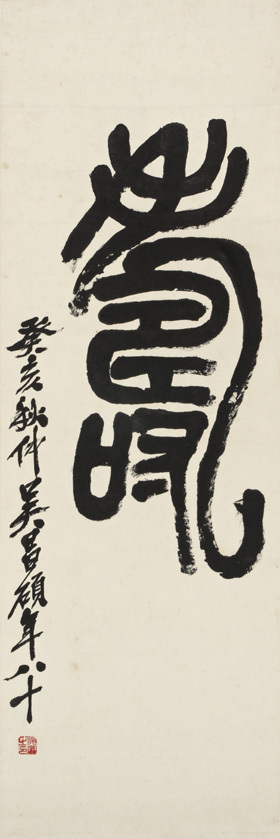 壽
癸亥秋仲吳昌碩年八十